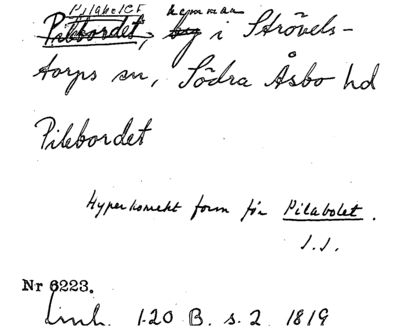 Pilabolet hemman
Pilebordet, by i Strövels-
torps sn, Södra Åsbo hd
Pilebordet
Hyperkorrekt form för Pilabolet.
J.J.
Nr 6223.
Linh. 120 B. s. 2 1819